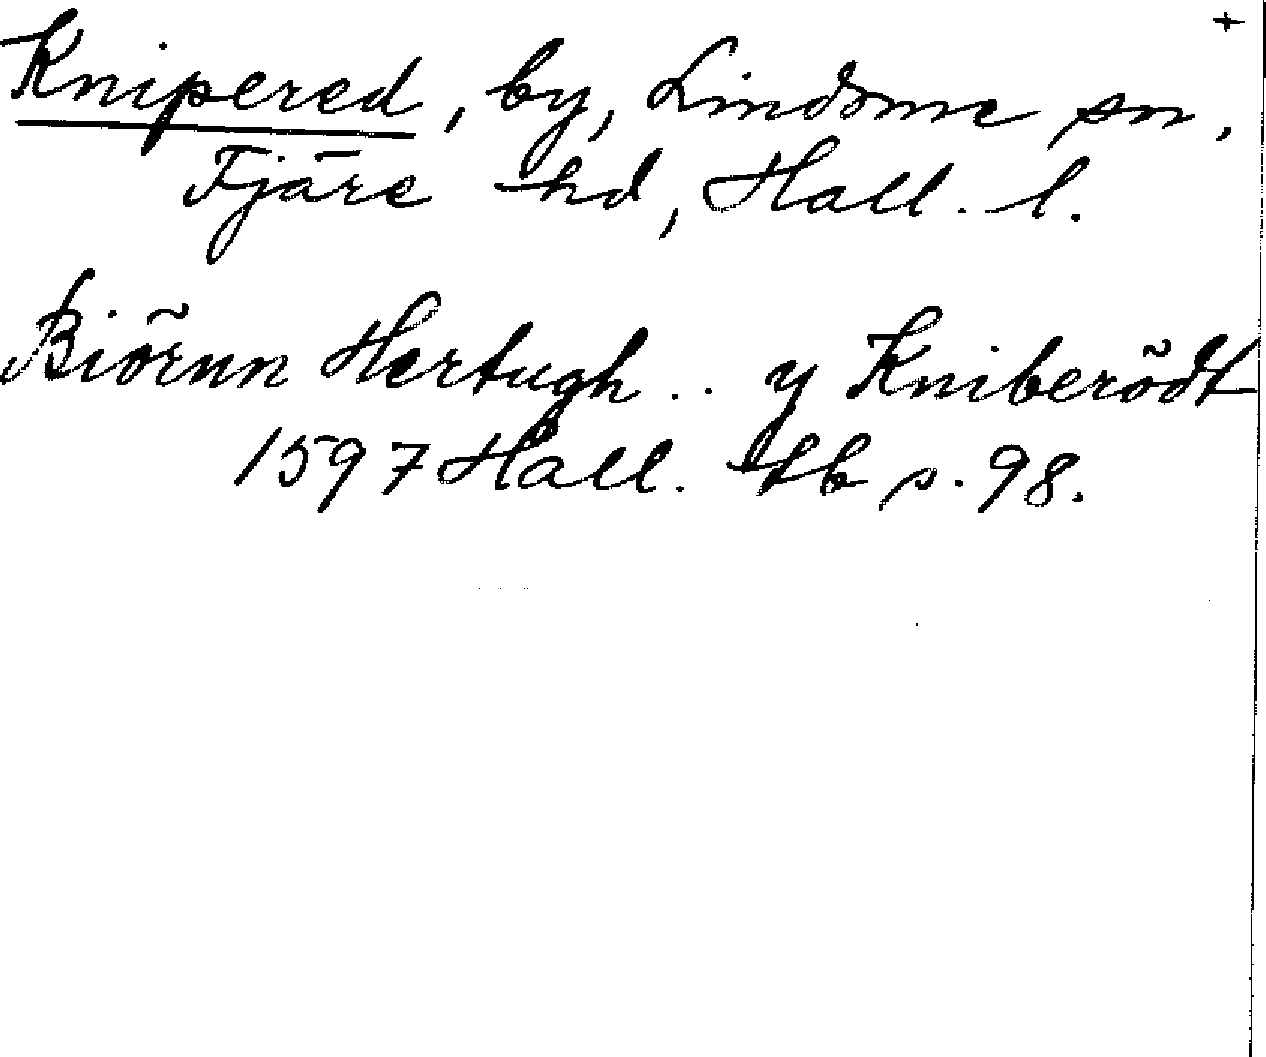 +
Knipered, by, Lindome sn,
Fjäre hd, Hall. l.
Biörnn Hertugh .. y Kniberödt
1597 Hall. tb s. 98.